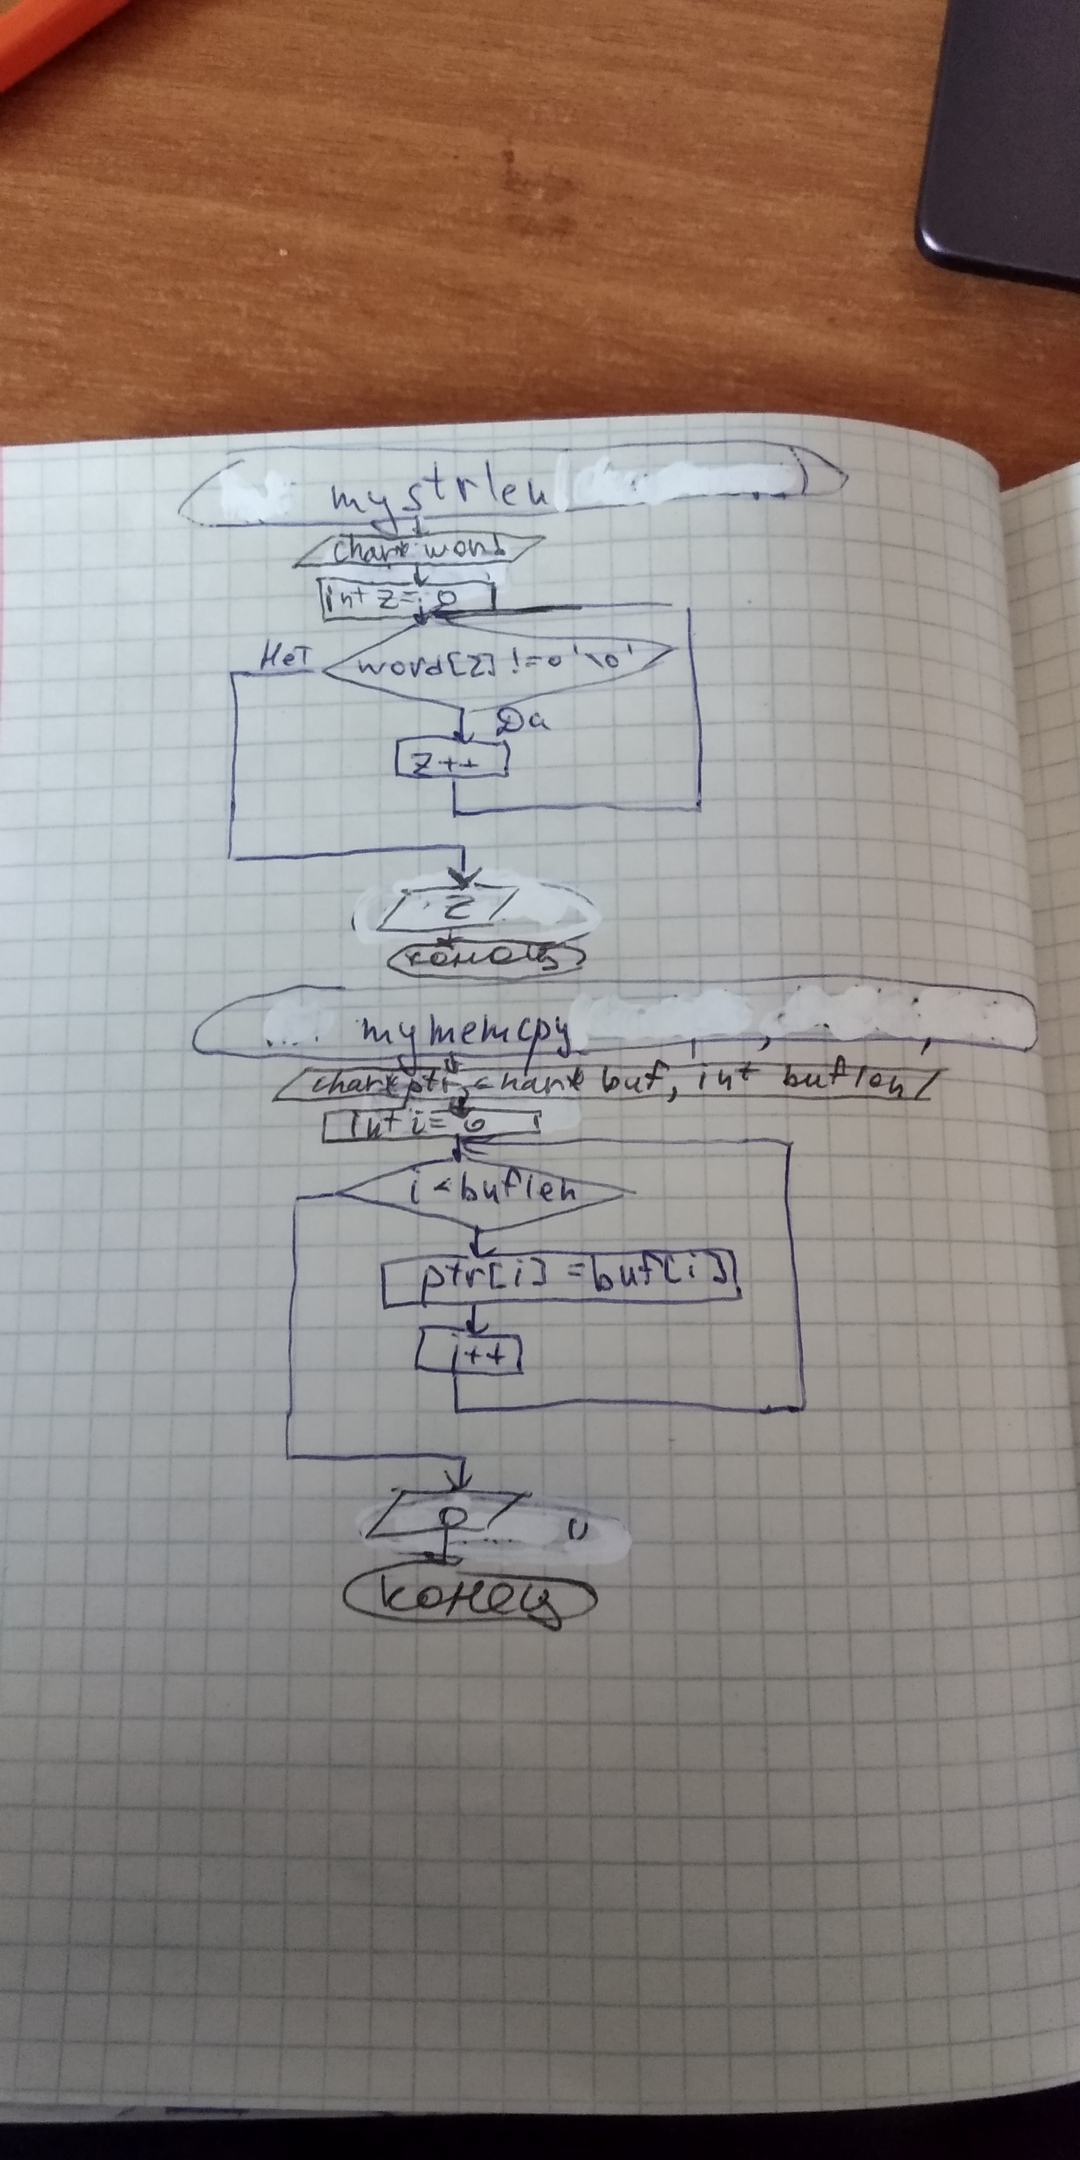 mystrlen
char* word
int z = 0
Нет
word[z] != '\0'
Да
z++
z
конец
mymemcpy
char* ptr, char* buf, int buflen
int i = 0
i < buflen
ptr[i] = buf[i]
i++
0
конец